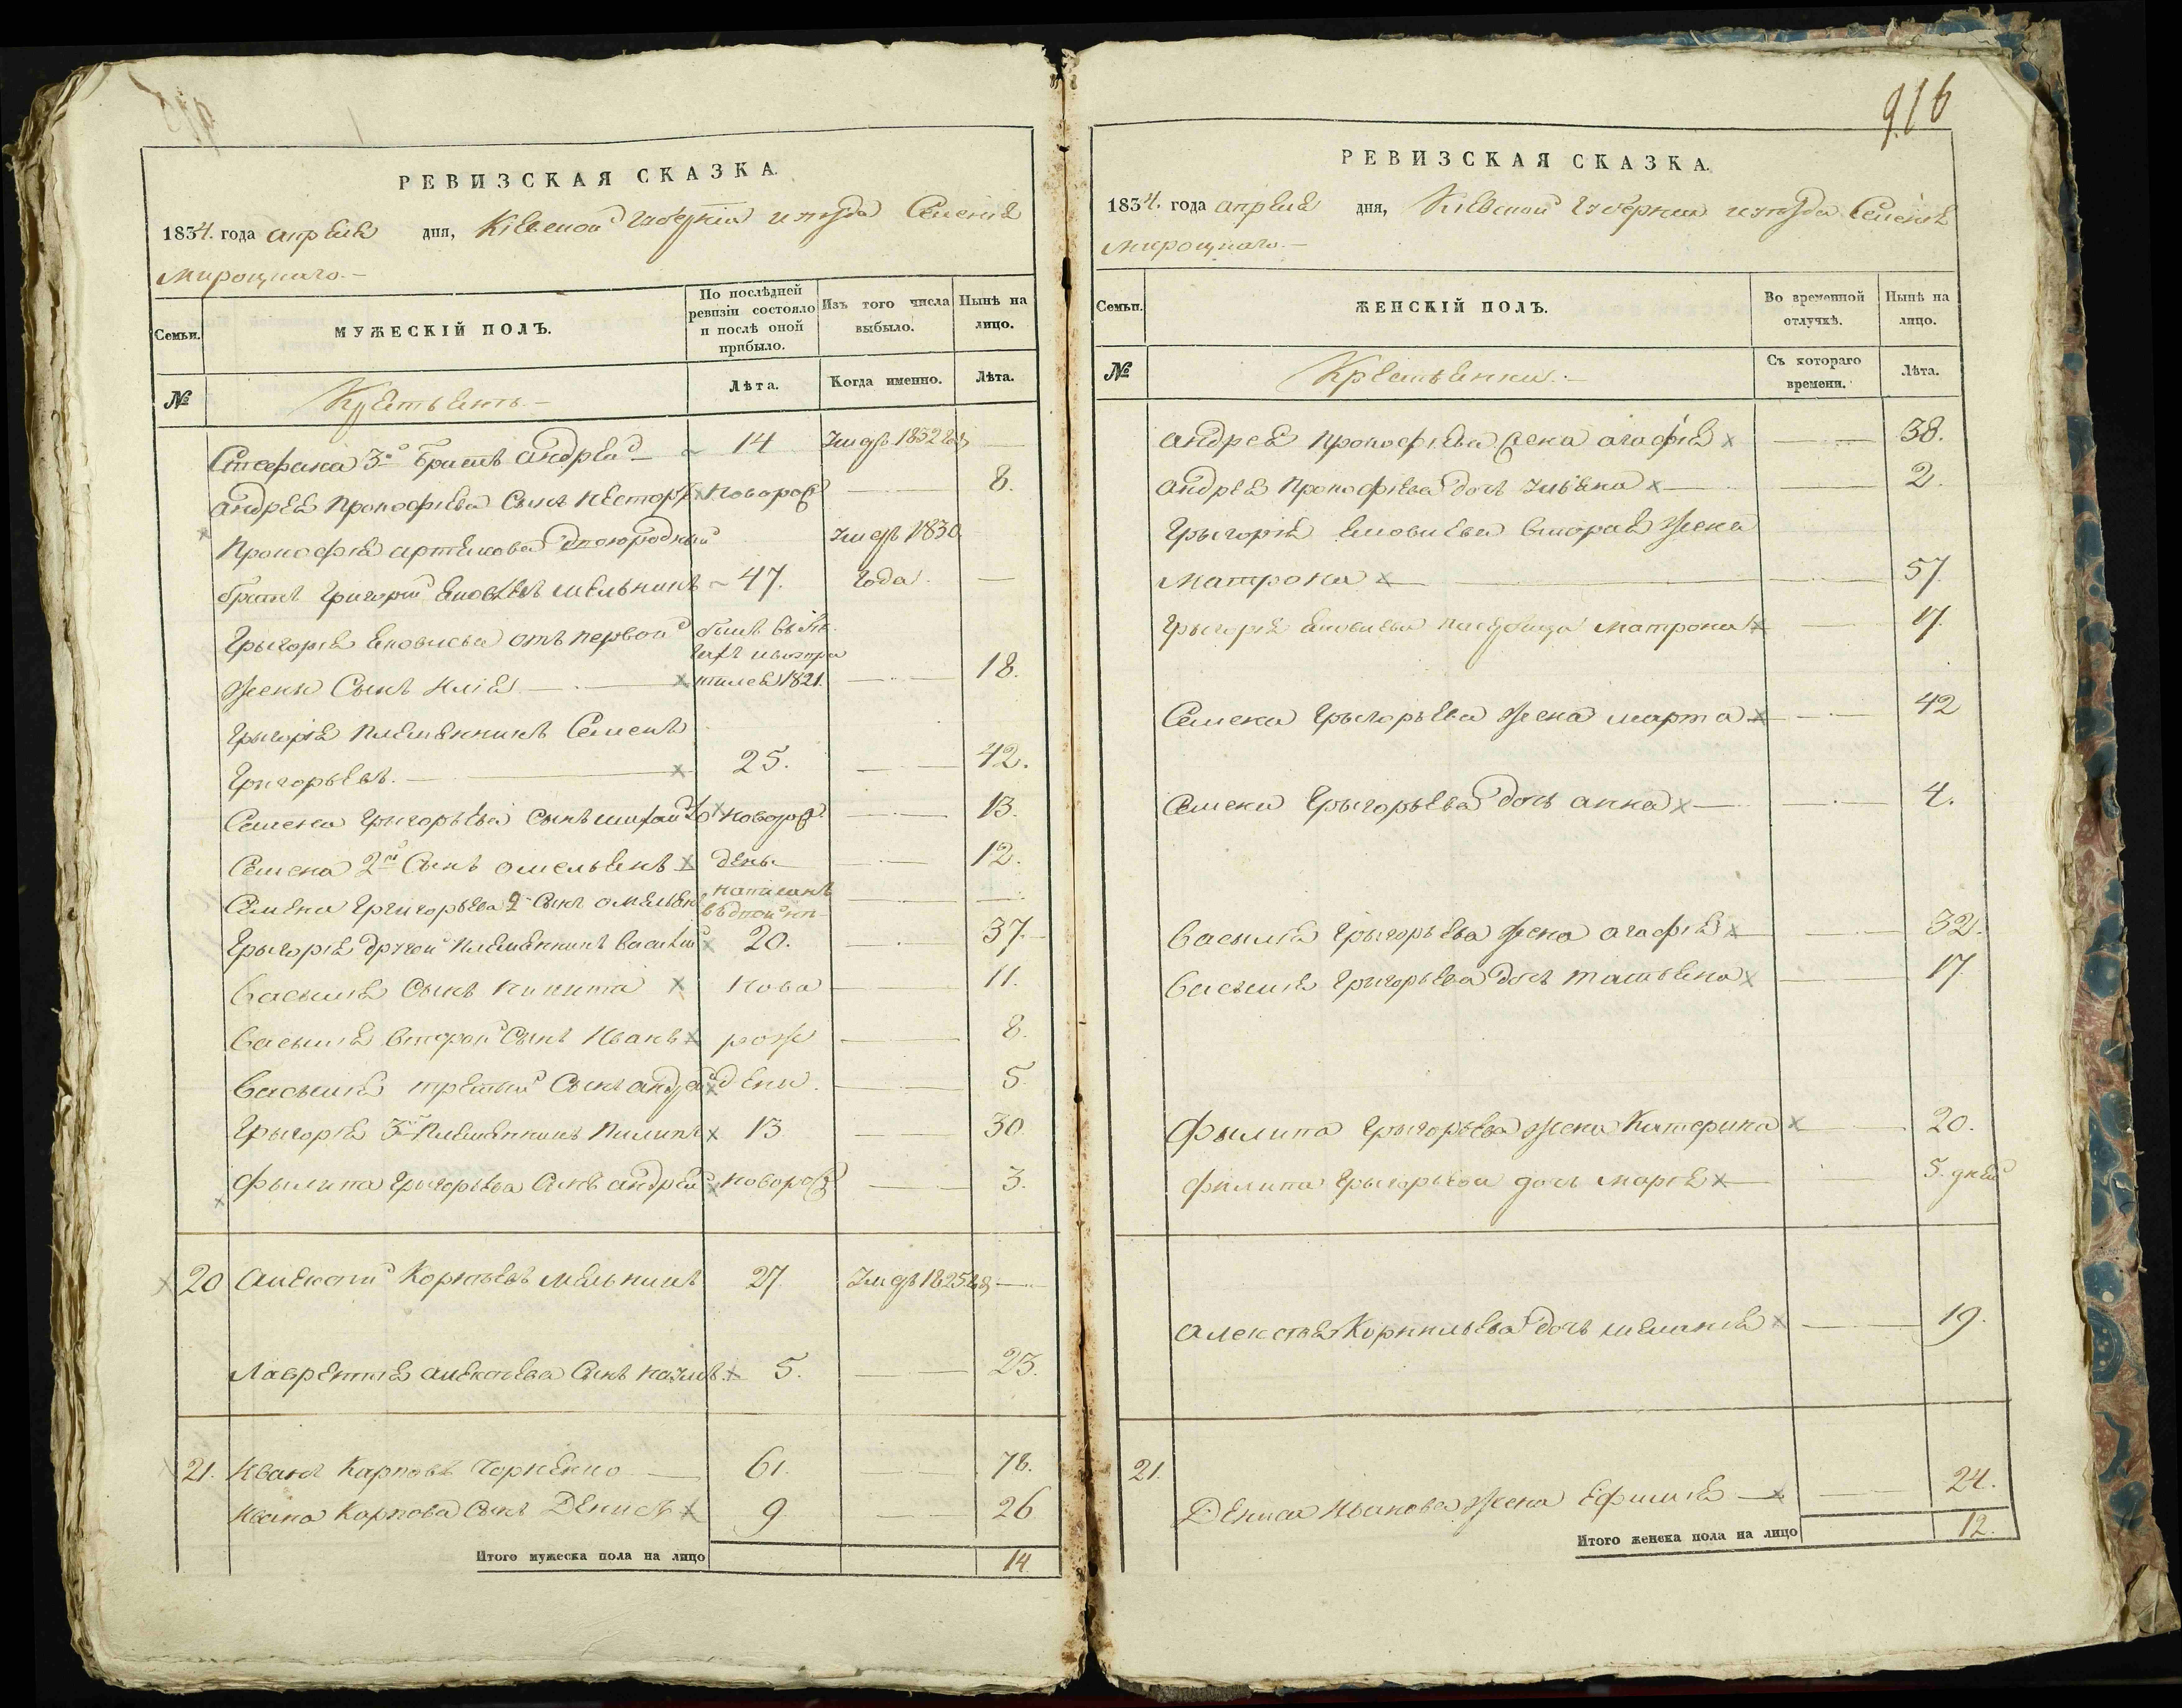 РЕВИЗСКАЯ СКАЗКА.
1834. года апреля дня, Кіевской Губерніи и уезда Селенія
Мироцкаго.—
Семьи.
МУЖЕСКІЙ ПОЛЪ.
По послѣдней ревизіи состояло и послѣ оной прибыло.
Изъ того числа выбыло.
Нынѣ на лицо.
№
Крестьянъ.—
Лѣта.
Когда именно.
Лѣта.
Стефана 3й братъ андрей — 14 Умеръ 1832 год —
андрея Прокофіева Сынъ Несторъ x Новорож — 8.
Прокофія артемова двоюродный Умеръ 1830
братъ Григорій Мельникъ — 47. Года. —
Григорія от первой былъ въ бе-
гахъ и возвра
жены Сынъ Илія — x тился 1821. — 18.
Григорія Племенникъ Семенъ
Григорьевъ. — x 25. — 42.
Семена Григорьева Сынъ x новорож — 13.
Семена 2й Сынъ омельянъ x дены — 12.
Семена Григорьева 2 Сынъ омельян написанъ —
Григорія другой Племенникъ Василий x 20. — 37.
Василия Сынъ Никита x Ново — 11.
Василия Второй Сынъ Иванъ x рож — 8.
Василия третий Сынъ андрей x дени. — 5.
Григорія 3й Племенникъ Пилипъ x 13 — 30
Филипа Григорьева Сынъ андрей x новорож — 3.
20 Алексей Корнѣевъ Мельникъ 27 Умеръ 1825 год —
Лаврентія Алексеева Сынъ x 5. — 23.
21. Иванъ Карповъ Чорненко — 61. — 78.
Ивана Карпова Сынъ Денисъ x 9 — 26
Итого мужеска пола на лицо 14
916
РЕВИЗСКАЯ СКАЗКА.
1834. года апреля дня, Кіевской Губерніи и уезда Селенія
Мироцкаго.—
Семьи.
ЖЕНСКІЙ ПОЛЪ.
Во временной отлучкѣ.
Нынѣ на лицо.
№
Крестьянки.—
Съ котораго времени.
Лѣта.
андрея Прокофіева Жена агафія x — 38.
андрея Прокофіева дочь x — 2.
Григорія вторая Жена
Матрона x — 57
Григорія Матрона x — 17
Семена Григорьева Жена марта x — 42
Семена Григорьева дочь анна x — 4.
Василия Григорьева Жена агафія x — 32.
Василия Григорьева дочь татьяна x — 17
Филипа Григорьева Жена Катерина x — 20.
Филипа Григорьева дочь марія x — 5. дней
алексея дочь x — 19.
21.
Дениса Иванова Жена Ефимія — x — 24.
Итого женска пола на лицо 12.